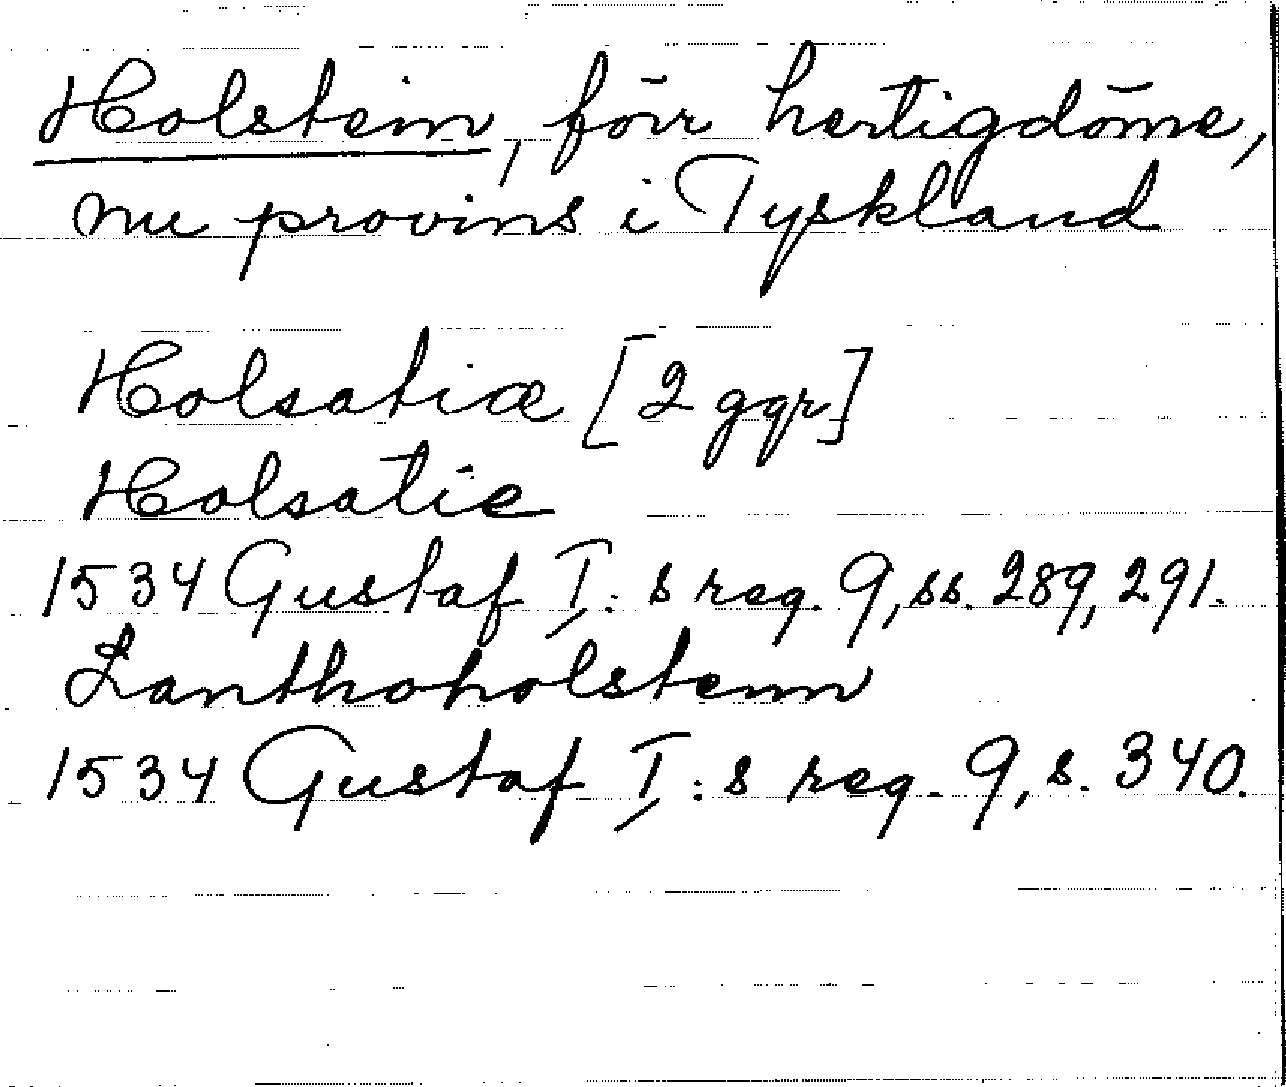 Holstein, förr hertigdöme,
nu provins i Tyskland
Holsatiæ [2 ggr]
Holsatie
1534 Gustaf I:s reg. 9, ss. 289, 291.
Lanthoholstenn
1534 Gustaf I:s reg. 9, s. 340.